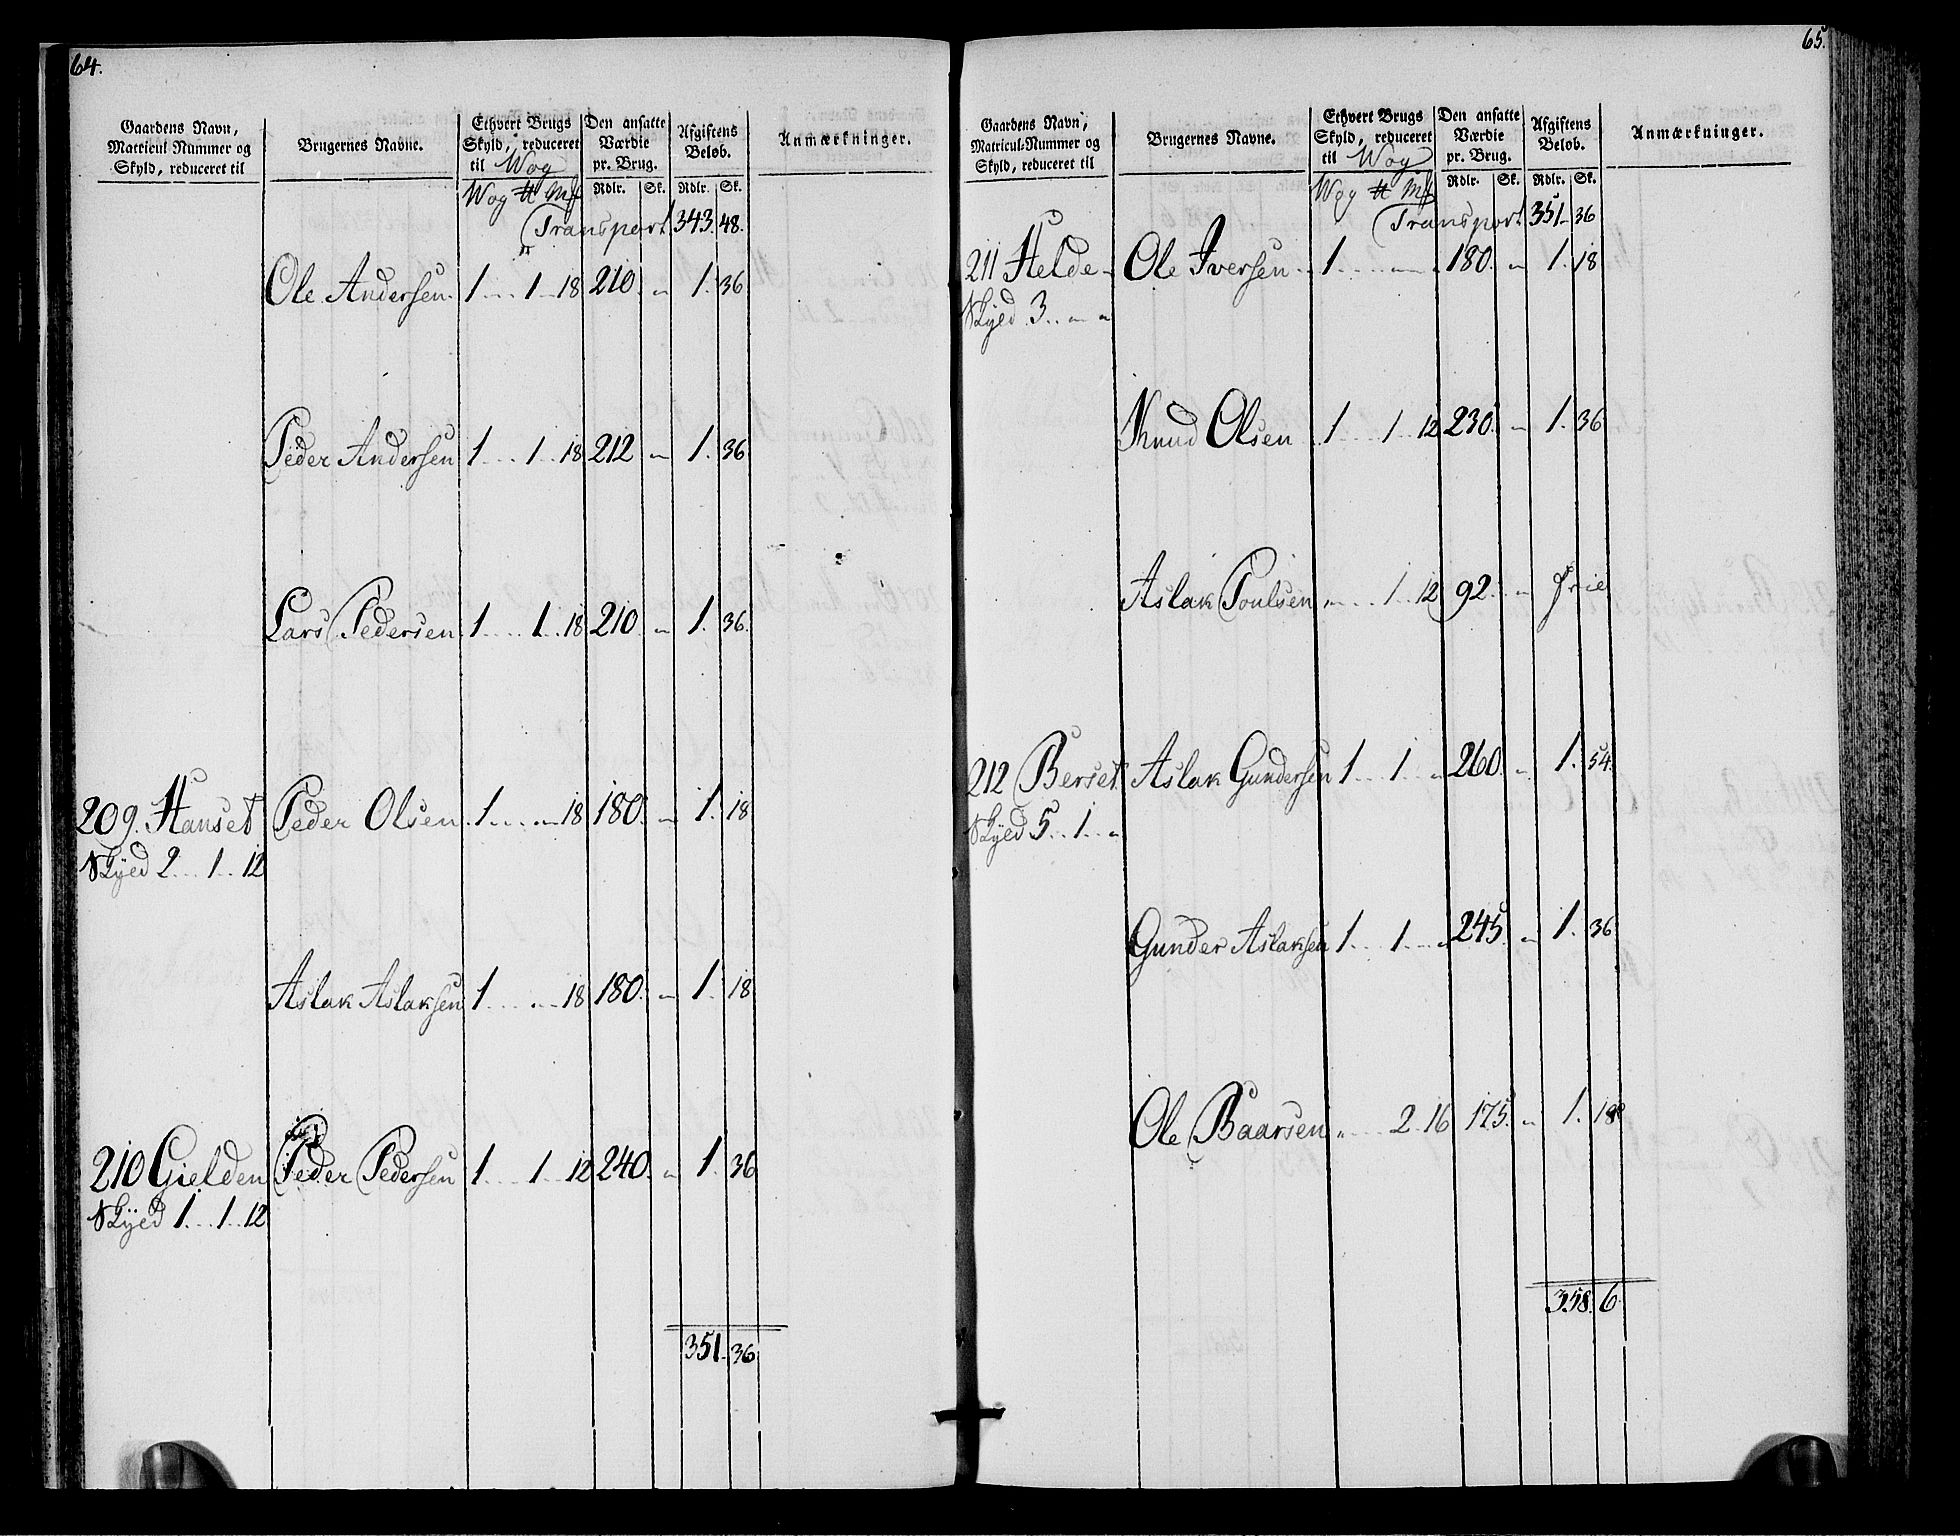 64.
Gaardens Navn, Matricul-Nummer og Skyld, reduceret til
Brugernes Navne.
Ethvert Brugs Skyld, reduceret til Wog
Den ansatte Værdie pr. Brug.
Afgiftens Beløb.
Anmærkninger.
Wog ℔ Mk Rdlr. Sk. Rdlr. Sk.
Transport 343. 48.
Ole Andersen 1 .... 1 .. 18 210. " 1. 36
Peder Andersen 1 .... 1 .. 18 212 " 1. 36
Lars Pedersen 1 .... 1 .. 18 210 " 1. 36.
209. Hanset Peder Olsen 1 .... " 18 180. " 1. 18
Skyld 2 ... 1 .. 12
Aslak Aslaksen 1 .... " 18 180. " 1. 18
210 Gielden Peder Pedersen 1 .... 1 .. 12 240. " 1. 36
Skyld 1 ... 1 .. 12
351. 36
65.
Gaardens Navn, Matricul-Nummer og Skyld, reduceret til
Brugernes Navne.
Ethvert Brugs Skyld, reduceret til Wog
Den ansatte Værdie pr. Brug.
Afgiftens Beløb.
Anmærkninger.
Wog ℔ Mk Rdlr. Sk. Rdlr. Sk.
Transport 351. 36
211 Helde Ole Iversen 1 .... " " 180. " 1. 18
Skyld 3 .. " "
Knud Olsen 1 .... 1 .. 12 230. " 1. 36
Aslak Poulsen " .... 1 .. 12 92. " frie
212 Berset Aslak Gundersen 1 ... 1 .. " 260. " 1. 54.
Skyld 5 .. 1 .. "
Gunder Aslaksen 1 ... 1 .. " 245. " 1. 36
Ole Baarsen " .... 2 .. 16 175. " 1. 18
358. 6.